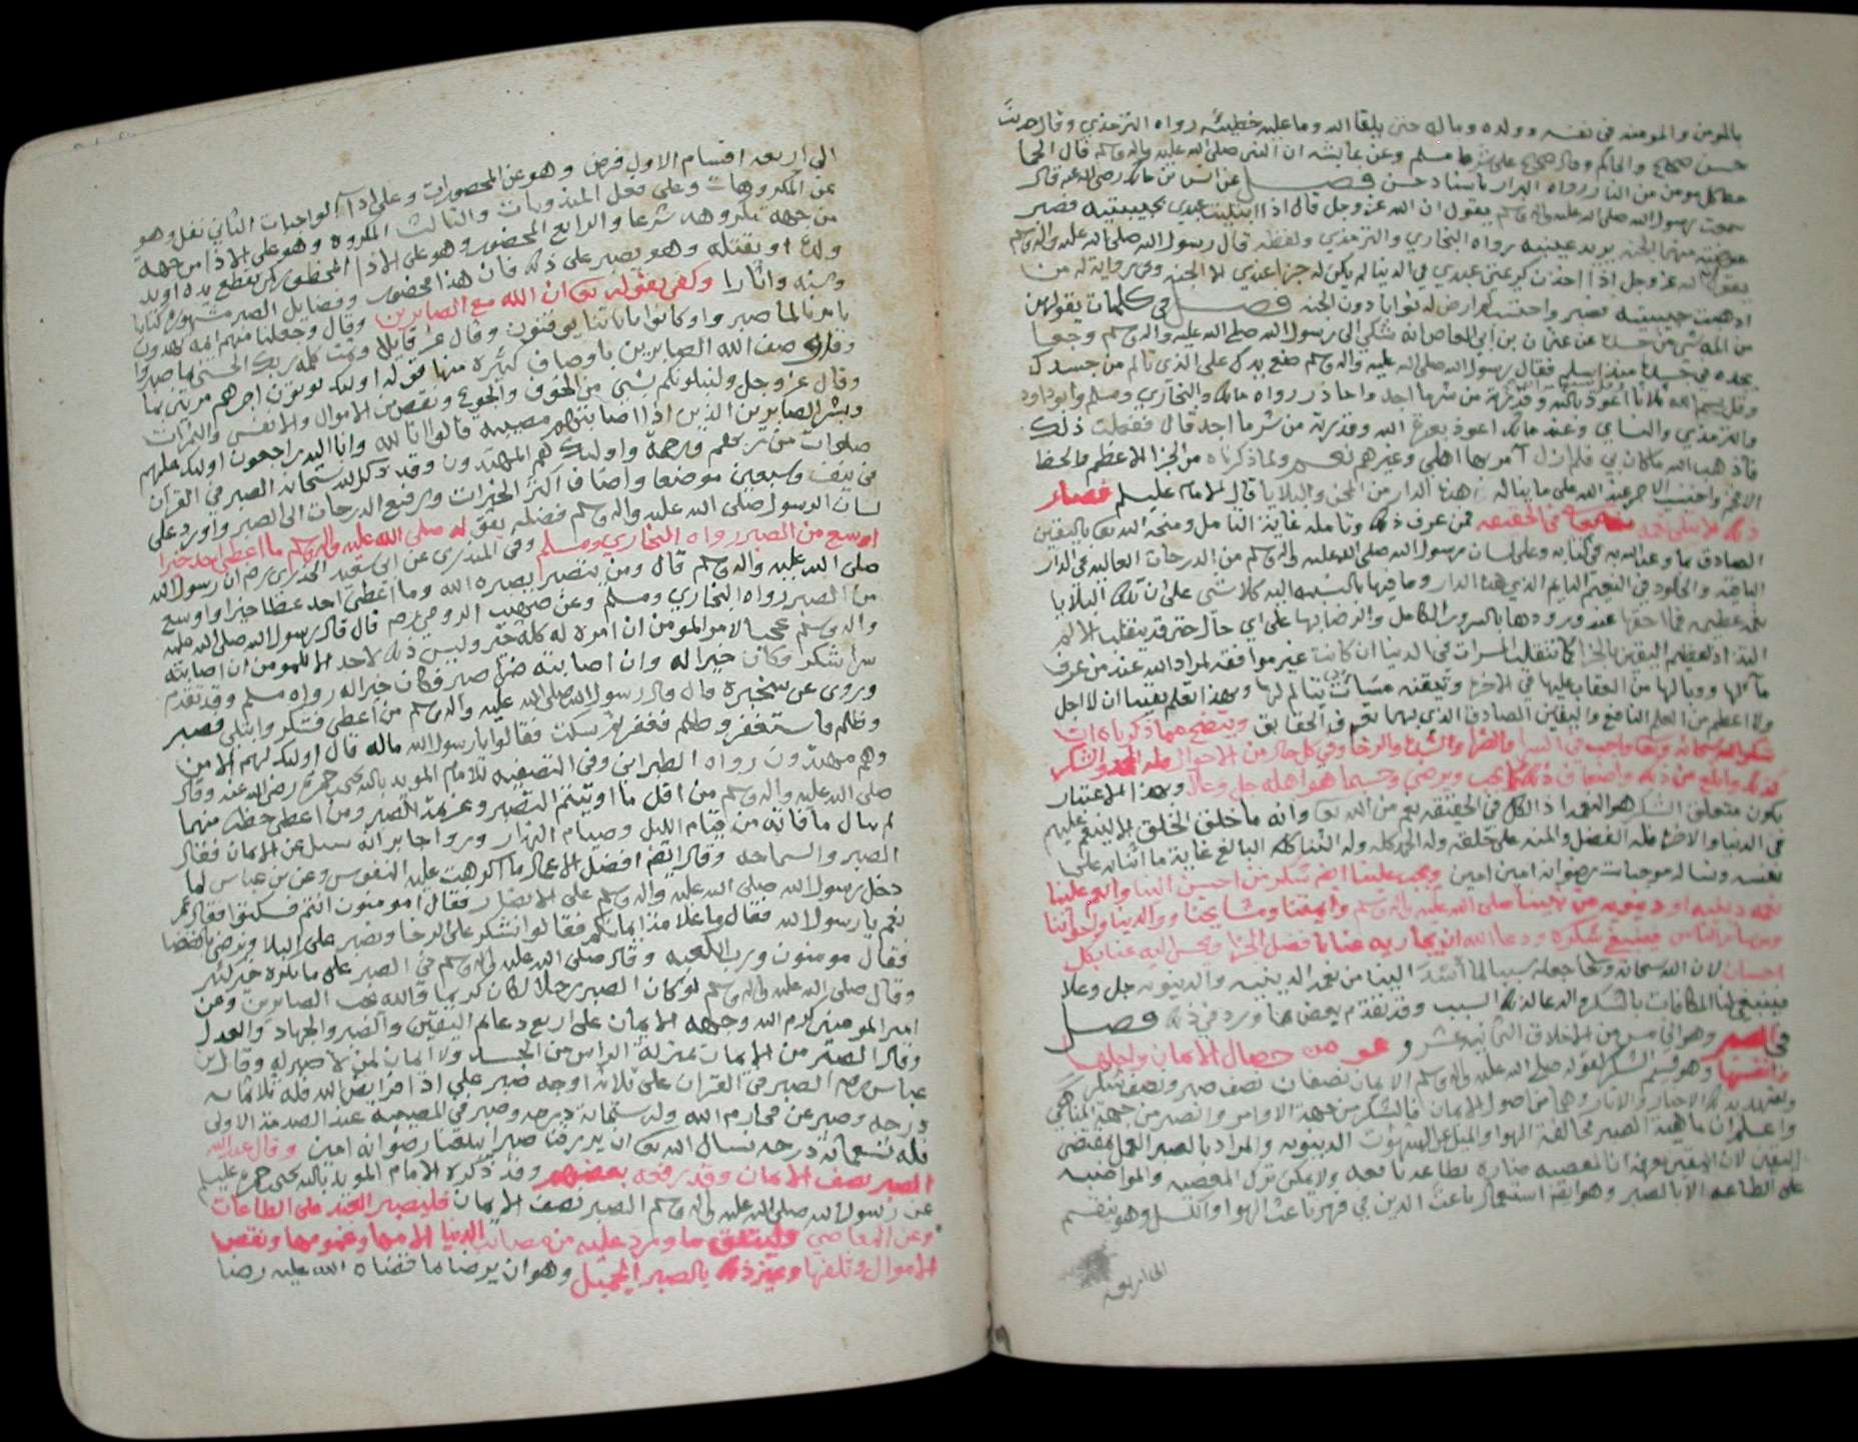 بالمومن والمومنه في نفسه وولده وماله حتى يلقا الله وما عليه خطيئه رواه الترمذي وقال حديث
حسن صحيح والحاكم وقال صحيح على شرط مسلم وعن عايشه ان النبي صلى الله عليه واله وسلم قال الحما
حظ كل مومن من النار رواه البزار باسناد حسن فصل عن انس بن مالك رضي الله عنه قال
سمعت رسول الله صلى الله عليه واله وسلم يقول ان الله عز وجل قال اذا ابتليت عبدي بحبيبتيه فصبر
عوضته منهما الجنه يريد عينيه رواه البخاري والترمذي ولفظه قال رسول الله صلى الله عليه واله وسلم
يقول الله عز وجل اذا اخذت كريمتي عبدي في الدنيا لم يكن له جزا عندي الا الجنه وفي رواية له من
اذهبت حبيبتيه فصبر واحتسب لم ارض له ثوابا دون الجنه فصل في كلمات يقولهن
من المه شي من جسده عن عثمان بن ابي العاص انه شكى الى رسول الله صلى الله عليه واله وسلم وجعا
يجده في جسده منذ اسلم فقال رسول الله صلى الله عليه واله وسلم ضع يدك على الذي تالم من جسدك
وقل بسم الله ثلاثا اعوذ بالله وقدرته من شر ما اجد واحاذر رواه مالك والبخاري ومسلم وابو داود
والترمذي والنساي وعند مالك اعوذ بعزة الله وقدرته من شر ما اجد قال ففعلت ذلك
فاذهب الله ما كان بي فلم ازل آمر بها اهلي وغيرهم ولما ذكرناه من الجزا الاعظم والحظ
الصادق بما وعد الله به في كتابه وعلى لسان رسول الله صلى الله عليه واله وسلم من الدرجات العاليه في الدار
الباقيه والخلود في النعيم الدايم الذي هذه الدار وما فيها بالنسبه اليه كلا شي على ان تلك البلايا
ولا اعظم من العلم النافع واليقين الصادق الذي بهما تعرف الحقايق ويتضح مما ذكرناه ان
شكر الله سبحانه وتعالى واجب في السرا والضرا والشدة والرخا وفي كل حال من الاحوال فله الحمد والشكر
يكون متعلق الشكر هو النعم اذ الكل في الحقيقه نعم من الله تعالى وانه ما خلق الخلق الا لينعم عليهم
في الدنيا والاخرة فله الفضل والمنه على خلقه وله الحمد كله وله الثنا كله البالغ غاية ما اثنا به على
نفسه ونساله موجبات رضوانه امين امين ويجب علينا ايضا شكر من احسن الينا وانعم علينا
نعمه دينيه او دنيويه من نبينا صلى الله عليه واله وسلم وايمتنا ومشايخنا ووالدينا واخواننا
ومن ساير الناس فينبغي شكره ودعا الله ان يجازيه عنا بافضل الجزا ويحسن اليه عنا بكل
احسان لان الله سبحانه وتعالى جعله سببا لما أسدى الينا من نعمه الدينيه والدنيويه جل وعلا
فينبغي لنا المكافات بالشكر والدعا لذلك السبب وقد تقدم بعض ما ورد في ذلك فصل
في الصبر وهو الخامس من الاخلاق الثمانيه عشر وهو من خصال الايمان واجلها
وانفسها وهو قسيم الشكر لقوله صلى الله عليه واله وسلم الايمان نصفان نصف صبر ونصف شكر
واعلم ان ماهية الصبر مخالفة الهوا والميل عن الشهوات الدنيويه والمراد بالصبر العمل بمقتضى
اليقين لان اليقين يعرفه ان المعصيه ضاره والطاعه نافعه ولا يمكن ترك المعصيه والمواضبه
على الطاعه الا بالصبر وهو ايضا استعمال باعث الدين في قهر باعث الهوا والكسل وهو ينقسم
الى اربعه
الى اربعه اقسام الاول فرض وهو عن المحضورات وعلى ادآ الواجبات الثاني نفل وهو
عن المكروهات وعلى فعل المندوبات والثالث المكروه وهو على الاذا من جهه
من جهه مكروهه شرعا والرابع المحضور وهو على الاذا المحظور كمن يقطع يده او يد
ولده او يقتله وهو يصبر على ذلك فان هذا محضور وفضايل الصبر مشهوره كتابا
وسنه واثارا وكفى بقوله تعالى ان الله مع الصابرين وقال وجعلنا منهم ايمة يهدون
بامرنا لما صبروا وكانوا باياتنا يوقنون وقال عز قايلا وتمت كلمه ربك الحسنى بما صبروا
وقد وصف الله الصابرين باوصاف كثيره منها قوله اولئك يوتون اجرهم مرتين بما
وقال عز وجل ولنبلونكم بشي من الخوف والجوع ونقص من الاموال والانفس والثمرات
وبشر الصابرين الذين اذا اصابتهم مصيبه قالوا انا لله وانا اليه راجعون اولئك عليهم
صلوات من ربهم ورحمة واولئك هم المهتدون وقد ذكر الله سبحانه الصبر في القرآن
في نيف وسبعين موضعا واضاف اكثر الخيرات ورفيع الدرجات الى الصبر واورد على
لسان الرسول صلى الله عليه واله وسلم فضله بقوله صلى الله عليه واله وسلم ما اعطي احد خيرا
اوسع من الصبر رواه البخاري ومسلم وفي المنذري عن ابي سعيد الخدري رض ان رسول الله
صلى الله عليه واله وسلم قال ومن يتصبر يصبره الله وما اعطي احد عطا خيرا واوسع
من الصبر رواه البخاري ومسلم وعن صهيب الرومي رض قال قال رسول الله صلى الله عليه
واله وسلم عجبا لامر المومن ان امره له كله خير وليس ذلك لاحد الا للمومن ان اصابته
سرا شكر فكان خيرا له وان اصابته ضرا صبر فكان خيرا له رواه مسلم وقد تقدم
وروي عن سخبره قال قال رسول الله صلى الله عليه واله وسلم من اعطي فشكر وابتلي فصبر
وظلم فاستغفر وظلم فغفر ثم سكت فقالوا يا رسول الله ماله قال اولئك لهم الامن
وهم مهتدون رواه الطبراني وفي التصفيه للامام المويد بالله يحيى بن حمزة رضي الله عنه وقال
صلى الله عليه واله وسلم من اقل ما اوتيتم اليقين وعزيمة الصبر ومن اعطي حظه منهما
لم يبال ما فاته من قيام الليل وصيام النهار وروا جابر انه سيل عن الايمان فقال
الصبر والسماحه وقال ايضا افضل الاعمال ما اكرهت عليه النفوس وعن بن عباس لما
دخل رسول الله صلى الله عليه واله وسلم على الانصار فقال امومنون انتم فسكتوا فقال عمر
نعم يا رسول الله فقال وما علامة ايمانكم فقالوا نشكر على الرخا ونصبر على البلا ونرضى بالقضا
فقال مومنون ورب الكعبه وقال صلى الله عليه واله وسلم في الصبر على ما تكره خير كثير
وقال صلى الله عليه واله وسلم لو كان الصبر رجلا لكان كريما والله يحب الصابرين وعن
امير المومنين كرم الله وجهه الايمان على اربع دعايم اليقين والصبر والجهاد والعدل
وقال الصبر من الايمان بمنزلة الراس من الجسد ولا ايمان لمن لا صبر له وقال بن
عباس رض الصبر في القران على ثلاثة اوجه صبر على ادا فرايض الله فله ثلاثمايه
درجه وصبر عن محارم الله وله ستمائة درجه وصبر في المصيبة عند الصدمة الاولى
فله تسعمائة درجه نسال الله تعالى ان يرزقنا صبرا يبلغنا رضوانه امين وقال عبدالله
الصبر نصف الايمان وقد رفعه بعضهم وقد ذكره الامام المويد بالله يحيى بن حمزة عليه السلام
عن رسول الله صلى الله عليه واله وسلم الصبر نصف الايمان فليصبر العبد على الطاعات
وعن المعاصي وليتلق ما ورد عليه من مصائب الدنيا الامها وغمومها ونقص
الاموال وتلفها وغير ذلك بالصبر الجميل وهو ان يرضا ما قضاه الله عليه رضا